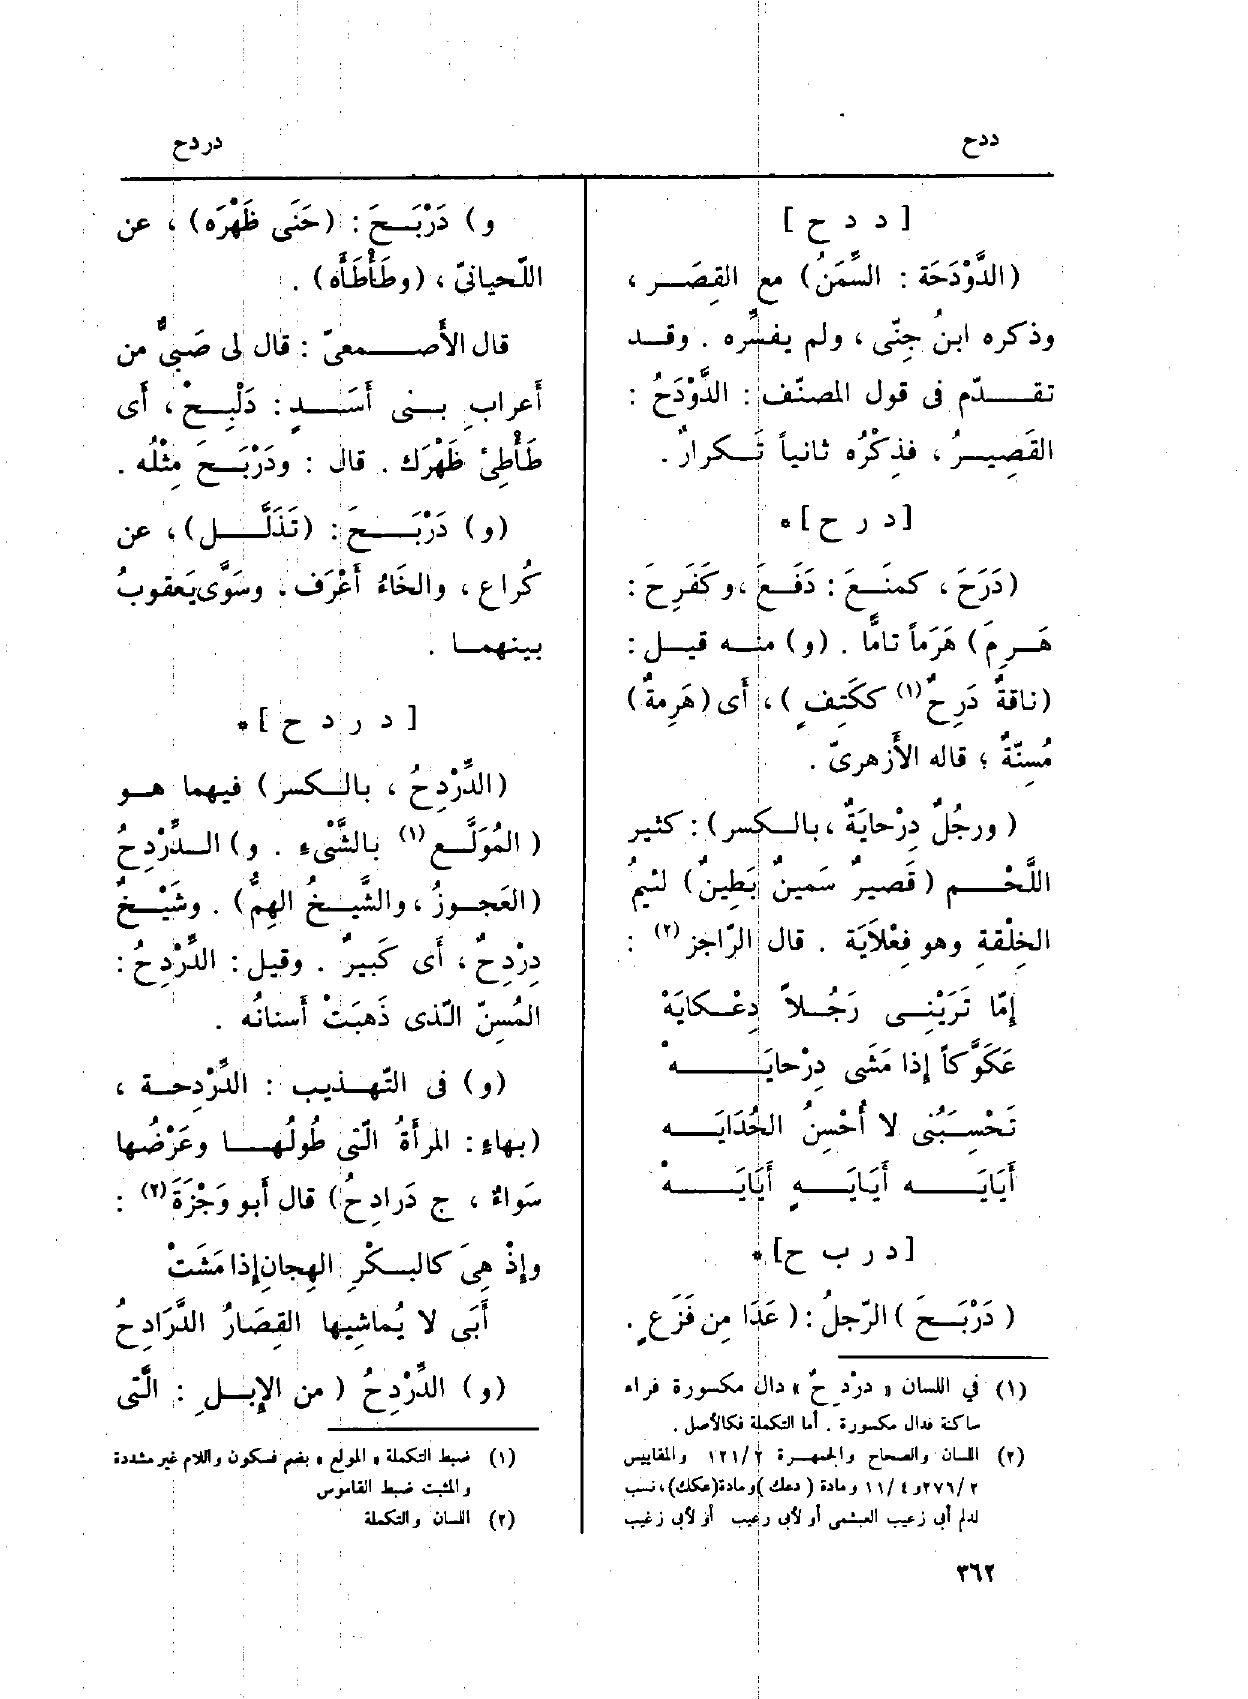 ددح
دردح
[ د د ح ]
(الدَّوْدَحَة : السِّمَنُ) مع القِصَر ،
وذكره ابنُ جِنّى ، ولم يفسِّره . وقد
تقدّم فى قول المصنّف : الذَّوْدَحُ :
القَصِيرُ ، فذِكْرُه ثانياً تَكرارٌ .
[د ر ح] *
(دَرَحَ ، كمنَعَ : دَفَعَ ، وكفَرِحَ :
هَرِمَ) هَرَماً تامًّا . (و) منه قيل :
(ناقةٌ دَرِحٌ (١) ككَتِفٍ) ، أَى (هَرِمةٌ)
مُسِنّةٌ ؛ قاله الأَزهرىّ .
( ورجُلٌ دِرْحايَةٌ ، بالكسر) : كثير
اللَّحْمِ (قَصيرٌ سَمينٌ بَطِينٌ) لئيمُ
الخِلْقةِ وهو فِعْلاَيَة . قال الرّاجز (٢) :
إِمّا تَرَيْنِى رَجُلاً دِعْكايَهْ
عَكَوَّكاً إِذا مَشَى دِرْحايَهْ
تَحْسِبَُنى لا أُحْسِنُ الحُدَايَه
أَيَايَه أَيَايَهٍ أَيَايَهْ
[د ر ب ح] *
( دَرْبَحَ ) الرّجلُ : ( عَدَا مِن فَزَعٍ .
(١) في اللسان « درْدِحٌ » دال مكسورة فراء
ساكنة فدال مكسورة . أما التكملة فكالأصل .
(٢) اللسان والصحاح والجمهرة ١٢١/٢ والمقاييس
٢٧٦/٢ و ١١/٤ ومادة ( دعك ) ومادة (عكك) ، نسب
لدلم أبي زعيب العبشمى أو لأبى رعيب أو لأبى زغيب
و) دَرْبَحَ : (حَنَى ظَهْرَه) ، عن
اللّحيانىّ ، (وطَأْطَأَه) .
قال الأَصمعىّ : قال لى صَبىٌّ من
أَعرابِ بنى أَسَدٍ : دَلْبِحْ ، أَى
طَأْطِئْ ظَهْرَك . قال : ودَرْبَحَ مِثْلُه .
(و) دَرْبَحَ : (تَذَلَّل) ، عن
كُراع ، والخَاءُ أَعْرَف . وسَوَّى يَعقوبُ
بينهما .
[ د ر د ح ] *
(الدِّرْدِحُ ، بالكسر) فيهما هو
( المُوَلَّع (١) بالشَّىْءِ . و) الدِّرْدِحُ
(العَجوزُ ، والشَّيخُ الهِمُّ) . وشَيْخٌ
دِرْدِحٌ ، أَى كَبيرٌ . وقيل : الدِّرْدِحُ :
المُسِنّ الّذى ذَهبَتْ أَسنانُه .
(و) فى التّهذيب : الدِّرْدِحة ،
(بهاءٍ : المرأَةُ الّتى طُولُها وعَرْضُها
سَواءٌ ، ج دَرادِحُ) قال أَبو وَجْزَةَ (٢) :
وإِذْ هِىَ كالبكْرِ الهِجانِ إِذا مَشَتْ
أَبَى لا يُماشِيها القِصَارُ الدَّرَادِحُ
(و) الدِّرْدِحُ ( من الإِبلِ : الّتى
(١) ضبط التكملة « المولع » بضم فسكون واللام غير مشددة
والمثبت ضبط القاموس
(٢) اللسان والتكملة
٣٦٢